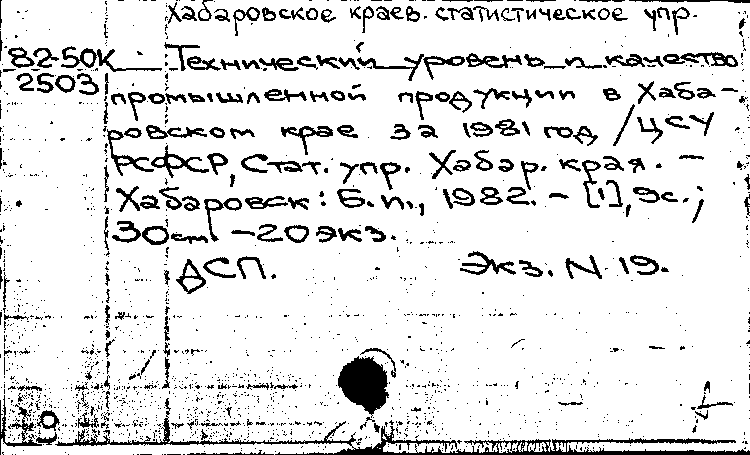 Хабаровское краев. статистическое упр.
82-50К Технический уровень и качество
2503
промышленной продукции в Хаба-
ровском крае за 1981 год /ЦСУ
РСФСР, Стат. упр. Хабар. края. –
Хабаровск: Б.и., 1982. – [1], 9с.;
30см. – 20 экз.
ДСП. Экз. N 19.
9